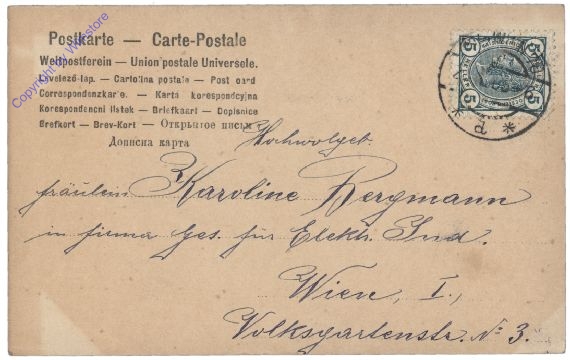 Postkarte — Carte-Postale
Weltpostverein — Union postale Universele.
Levelező-lap. — Cartolina postale — Post card
Correspondenzkarte. — Karta korespondcyjna
Korespondencni listek — Briefkaart — Dopisnice
Brefkort — Brev-Kort — Открытое письм
Дописна карта
Hochwolgeb.
fräulein Karoline Bergmann
in firma Ges. für Elektr. Ind.
Wien, I.,
Volksgartenstr. № 3.
5 5
5 5
Copyright by Wikstore